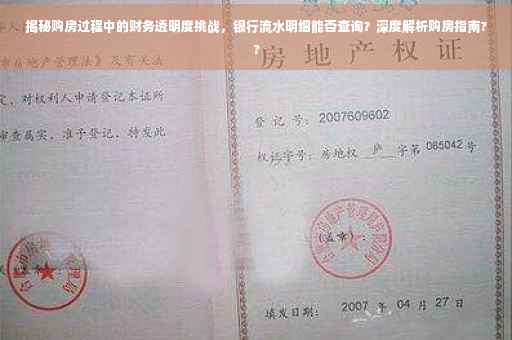 揭秘购房过程中的财务透明度挑战，银行流水明细能否查询？深度解析购房指南？
？
房地产权证
市房地产管理法》及有关法
定，对权利人申请登记本证所
审查属实，准予登记，特发此
登记号：2007609602
权证字号：房地权 庐 字第 065042 号
(盖章)：
填发日期：2007 年 04 月 27 日